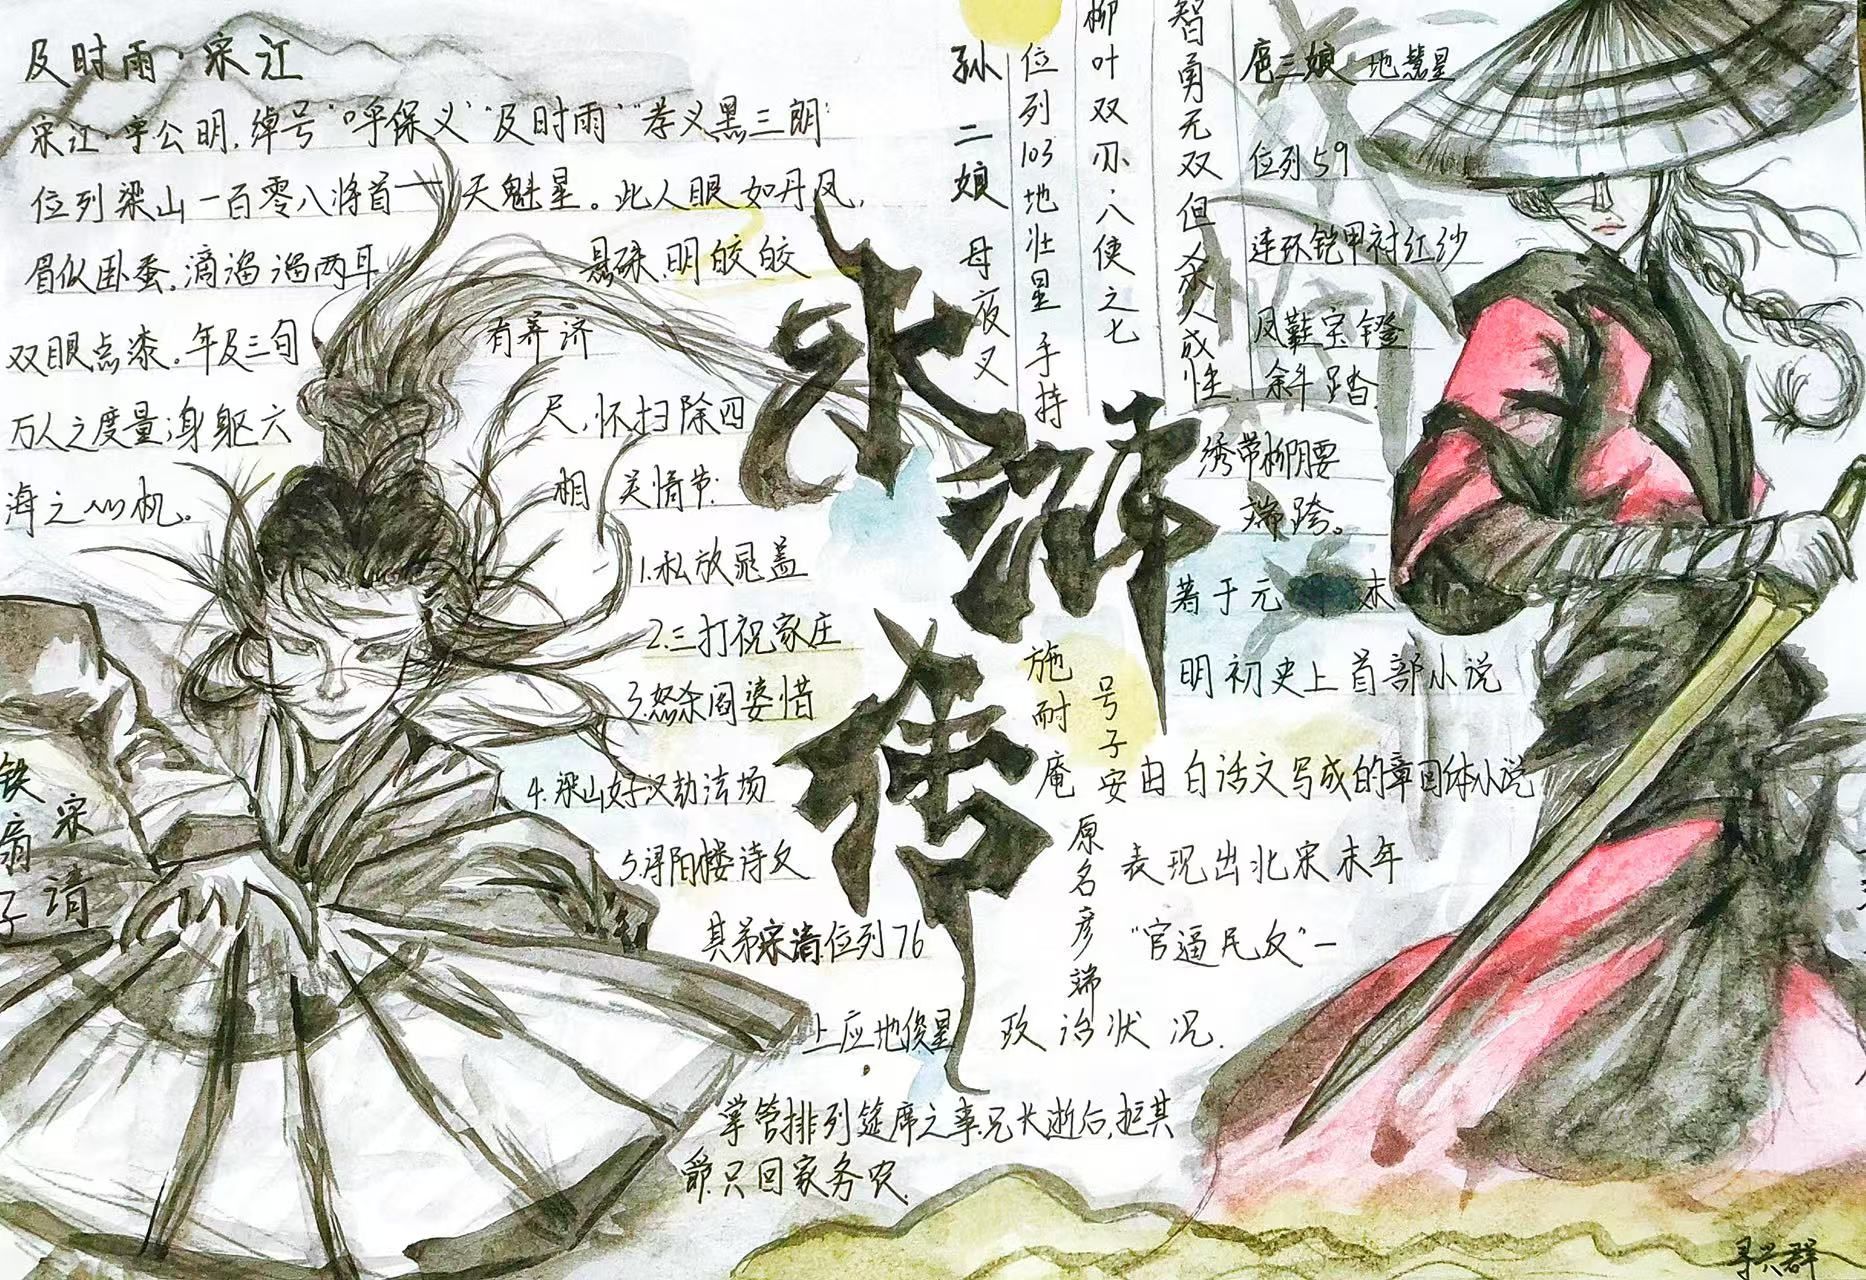 及时雨·宋江
宋江·字公明,绰号"呼保义""及时雨""孝义黑三朗"
位列梁山一百零八将首一天魁星。此人眼如丹凤,
眉似卧蚕。滴溜溜两耳悬珠,明皎皎
双眼点漆。年及三旬有养济
万人之度量;身躯六尺,怀扫除四
海之心机。
相关情节:
1.私放晁盖
2.三打祝家庄
3.怒杀阎婆惜
4.梁山好汉劫法场
5.浔阳楼诗文
其弟宋清位列76
上应地俊星
掌管排列筵席之事,兄长逝后,拒其
爵,只回家务农.
铁扇子
宋清
水浒传
孙二娘 母夜叉
位列103地壮星 手持
柳叶双刃·八侠之七
智勇无双但杀人成性.
扈三娘 地慧星
位列59
连环铠甲衬红纱
凤鞋宝镫
斜踏.
绣带柳腰
端跨。
施耐庵
号子安
原名彦端
著于元末
明初史上首部小说
由白话文写成的章回体小说
表现出北宋末年
"官逼民反"一
政治状况.
寻兴群